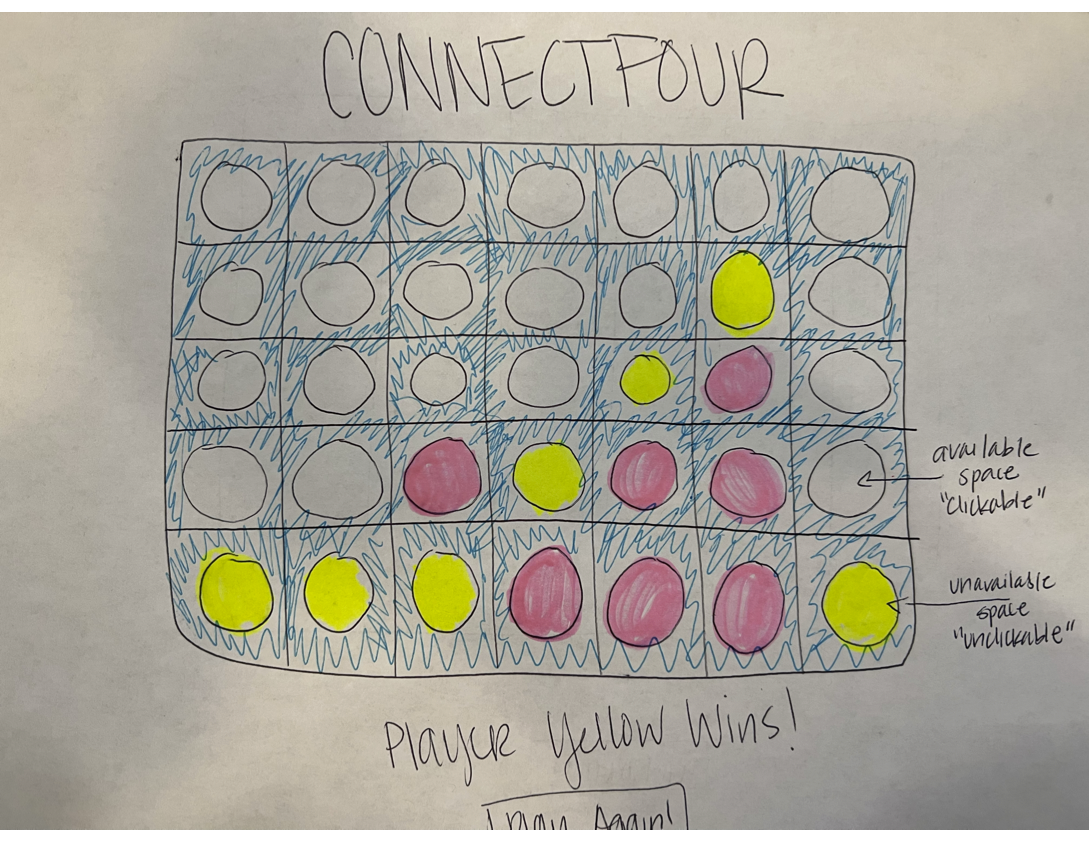 CONNECTFOUR
available
space
"clickable"
unavailable
space
"unclickable"
Player Yellow Wins!
Play Again!